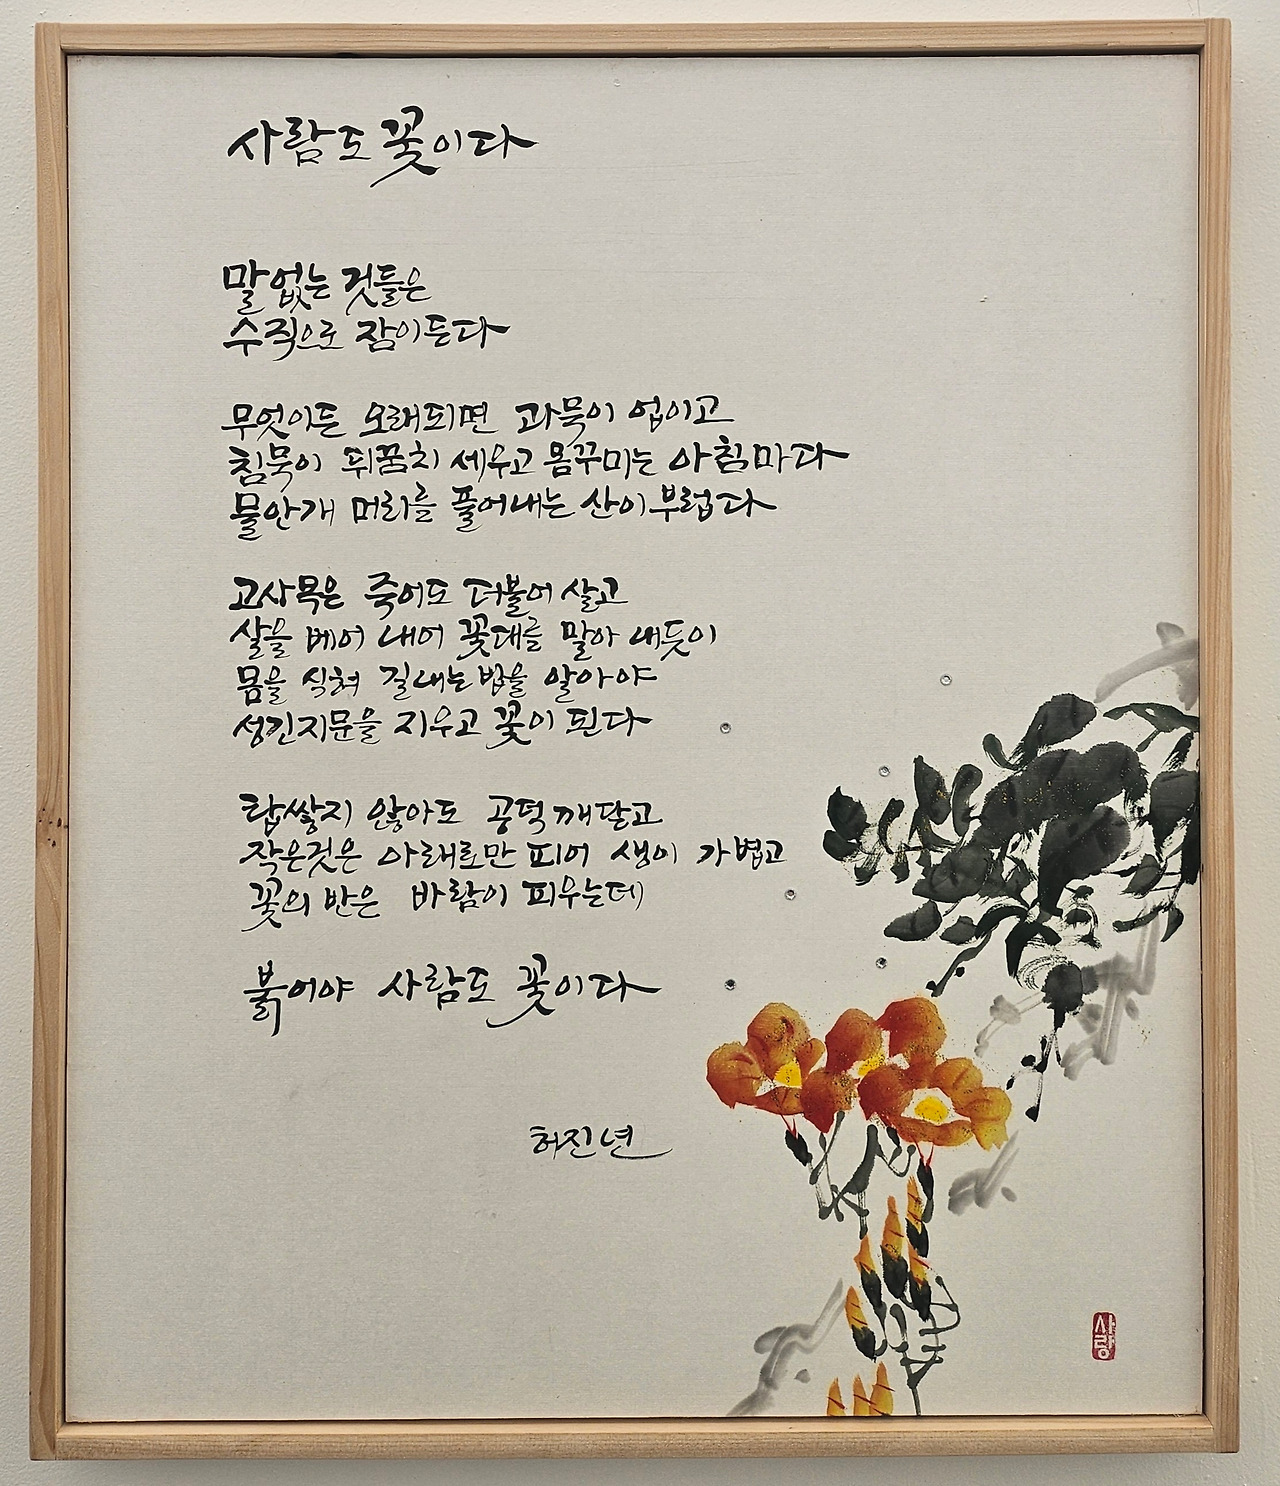 사람도 꽃이다
말없는 것들은
수직으로 잠이든다
무엇이든 오래되면 과묵이 업이고
침묵이 뒤꿈치 세우고 몸꾸미는 아침마다
물안개 머리를 풀어내는 산이부럽다
고사목은 죽어도 더불어 살고
살을 베어 내어 꽃대를 말아 내듯이
몸을 식혀 길내는법을 알아야
성긴지문을 지우고 꽃이 된다
탑쌓지 않아도 공덕 깨달고
작은것은 아래로만 피어 생이 가볍고
꽃의 반은 바람이 피우는데
붉어야 사람도 꽃이다
허진년
사랑